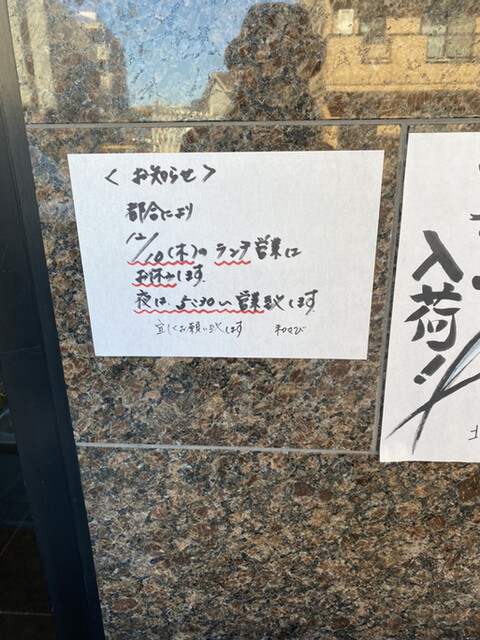 < お知らせ >
都合により
12/10(木)の ランチ営業は
お休みします.
夜は. 5:30〜営業致します.
宜しくお願い致します 和々び
入荷!